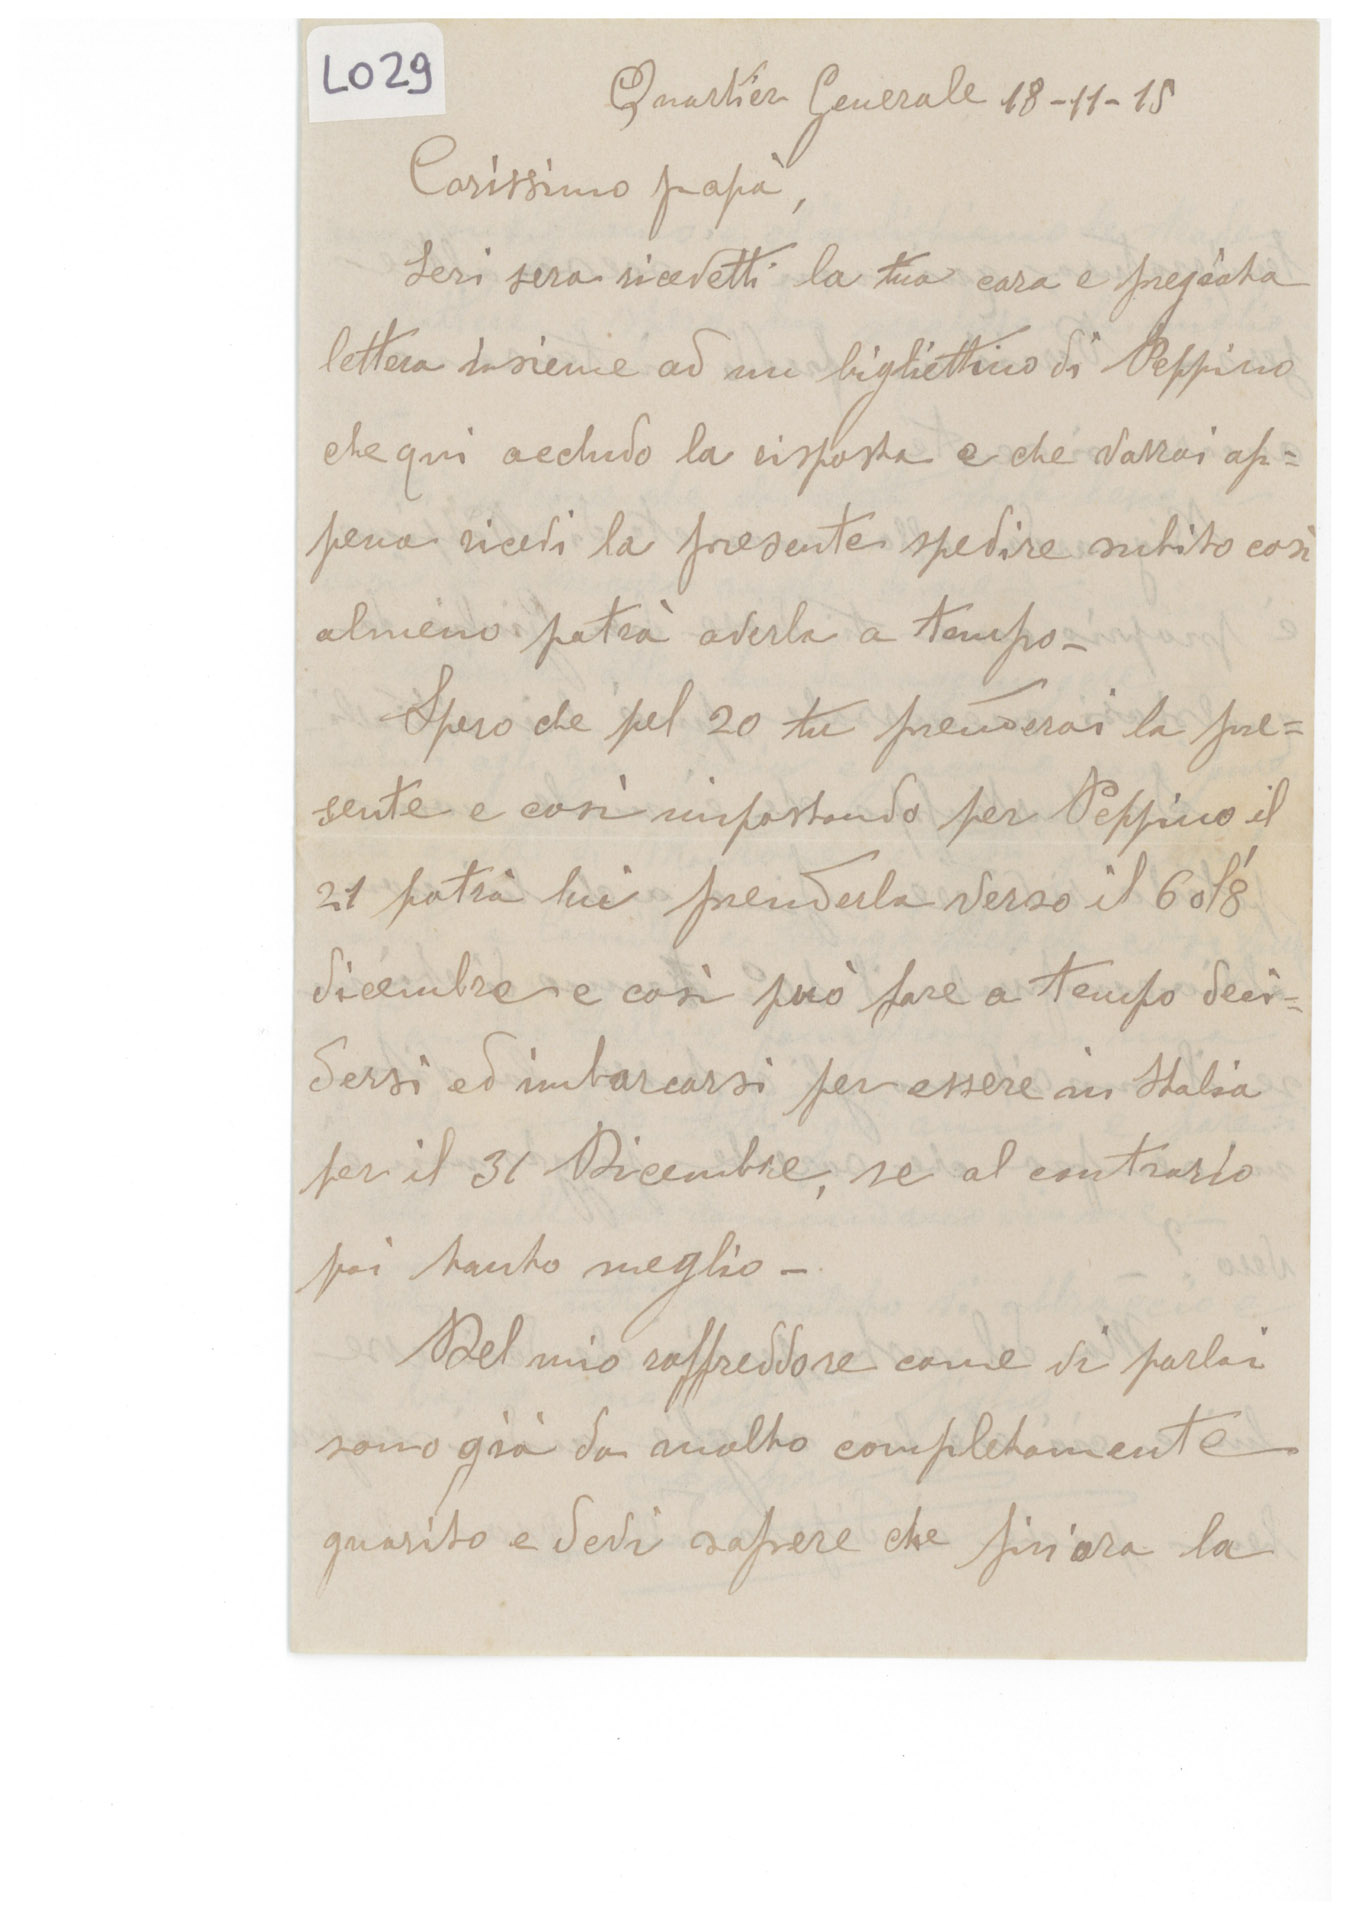 LO29
Quartier Generale 18-11-15
Carissimo papà,
Ieri sera ricevetti la tua cara e pregiata
lettera insieme ad un bigliettino di Peppino
che qui accludo la risposta e che dovrai ap=
pena ricevi la presente spedire subito così
almeno potrà averla a tempo-
Spero che pel 20 tu prenderai la pre=
sente e così impostando per Peppino il
21 potrà lui prenderla verso il 6 ol'8
dicembre e così può fare a tempo deci=
dersi ed imbarcarsi per essere in Italia
per il 31 Dicembre, se al contrario
poi tanto meglio-
Del mio raffreddore come vi parlai
sono già da molto completamente
guarito e devi sapere che finora la